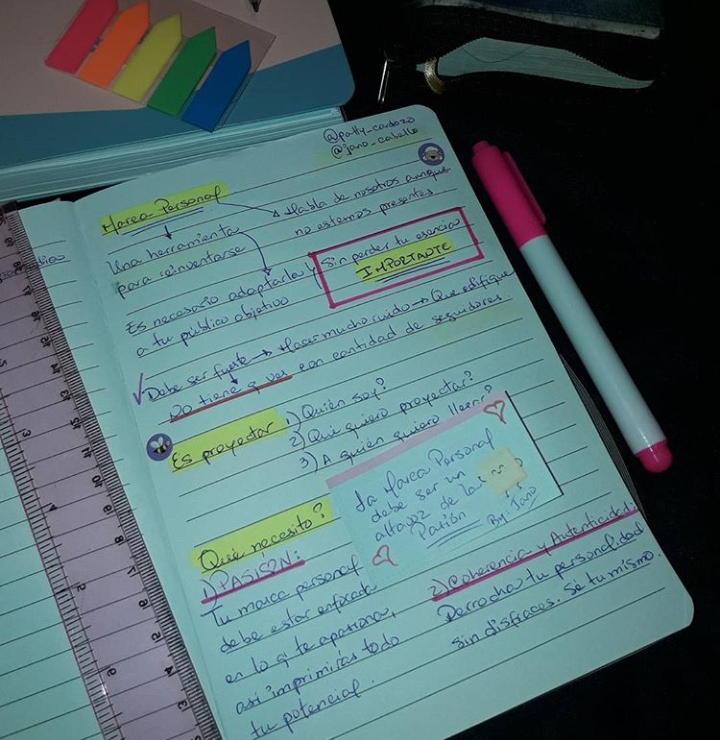 @patty_cardozo
@jano_cabello
Marca Personal
Habla de nosotros aunque
no estemos presentes
Una herramienta
para reinventarse
Es necesario adaptarla y
a tu público objetivo
Sin perder tu esencia
IMPORTANTE
Debe ser fuerte → Hacer mucho ruido → Que edifique
No tiene q ver con cantidad de seguidores.
Es proyectar
1) Quién soy?
2) Qué quiero proyectar?
3) A quién quiero llegar?
La Marca Personal
debe ser un
altavoz de la
Pasión
By: Jano
Qué necesito?
1) PASIÓN:
Tu marca personal
debe estar enfocada
en lo q te apasiona,
así imprimirás todo
tu potencial.
2) Coherencia y Autenticidad:
Derrocha tu personalidad
sin disfraces. Sé tu mismo.